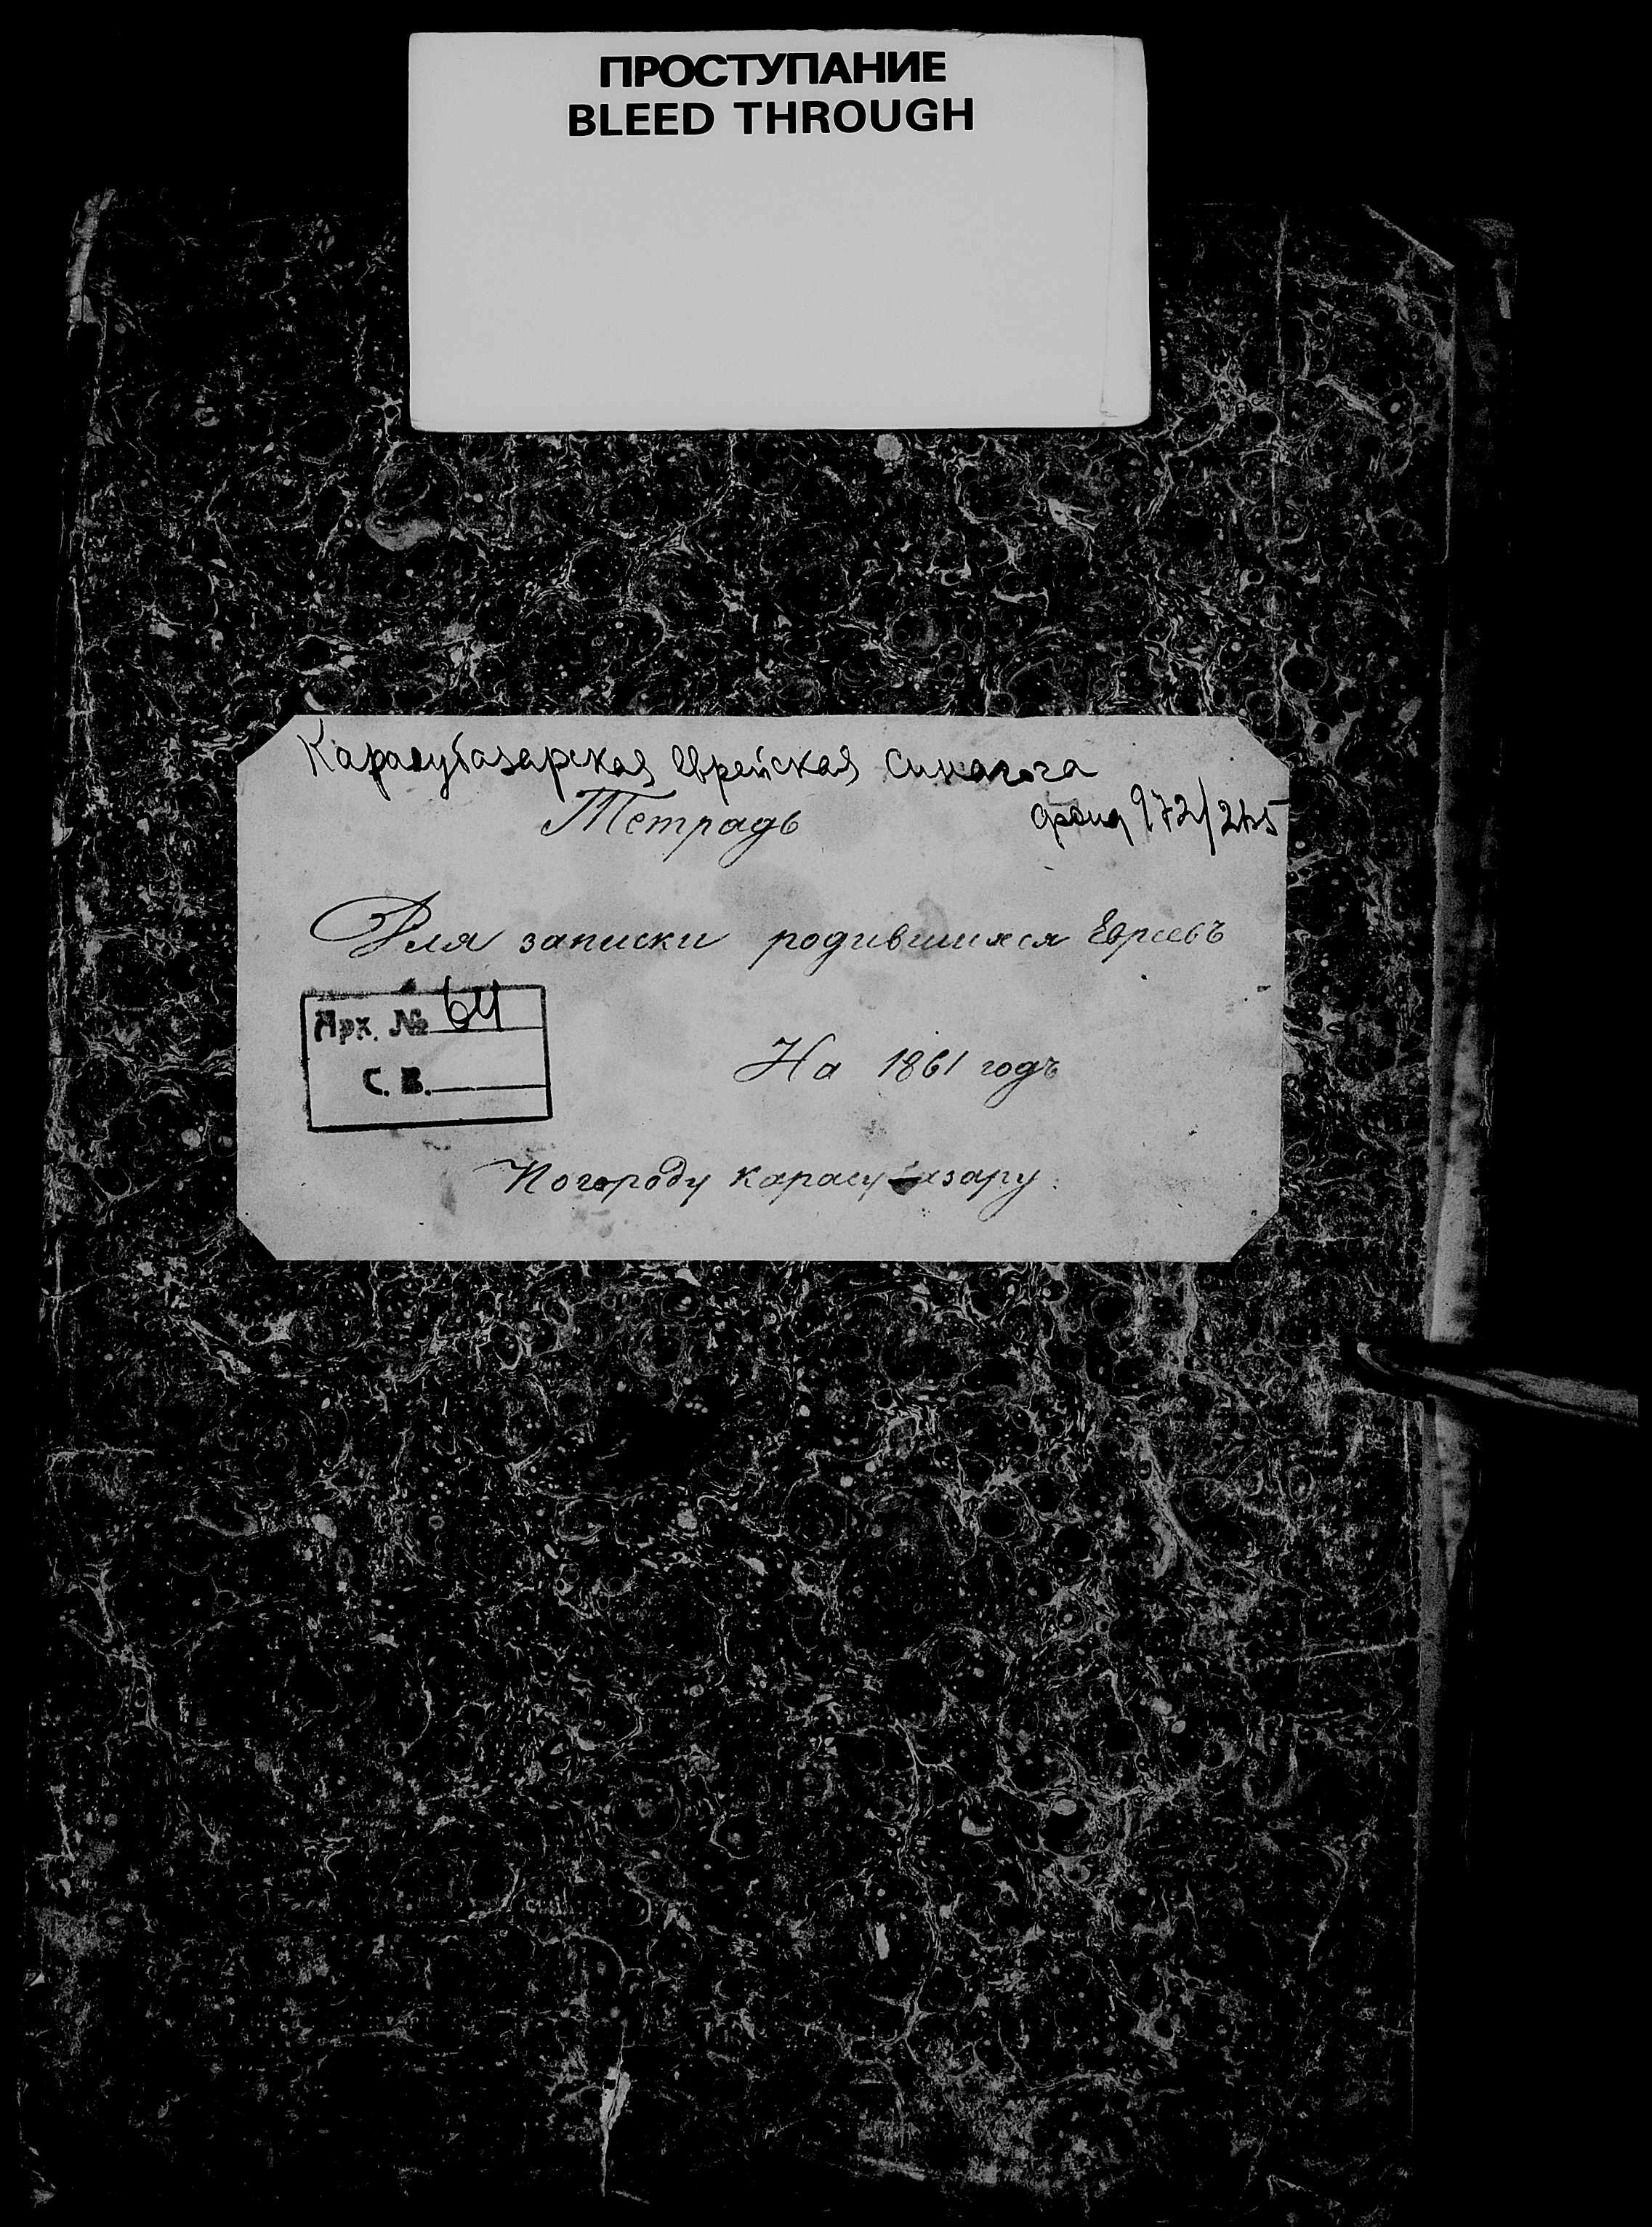 ПРОСТУПАНИЕ
BLEED THROUGH
Карасубазарская Еврейская Синагога
Тетрадь
фонд 972/245
Для записки родившихся Евреевъ
Арх. № 64
С. В.
На 1861 годъ
Погороду Карасубазару.